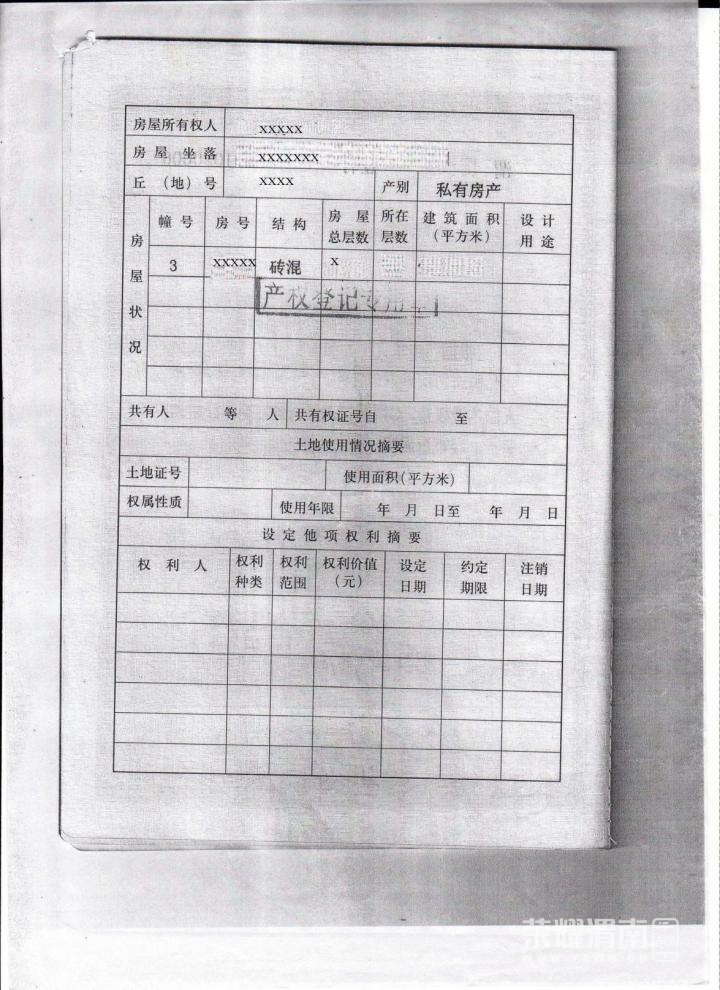 房屋所有权人 xxxxx
房屋坐落 xxxxxxx
丘（地）号 xxxx 产别 私有房产
房屋状况
幢号 房号 结构 房屋总层数 所在层数 建筑面积（平方米） 设计用途
3 xxxxx 砖混 x
产权登记专用
共有人 等 人 共有权证号自 至
土地使用情况摘要
土地证号 使用面积(平方米)
权属性质 使用年限 年 月 日至 年 月 日
设定他项权利摘要
权利人 权利种类 权利范围 权利价值（元） 设定日期 约定期限 注销日期
荣耀渭南